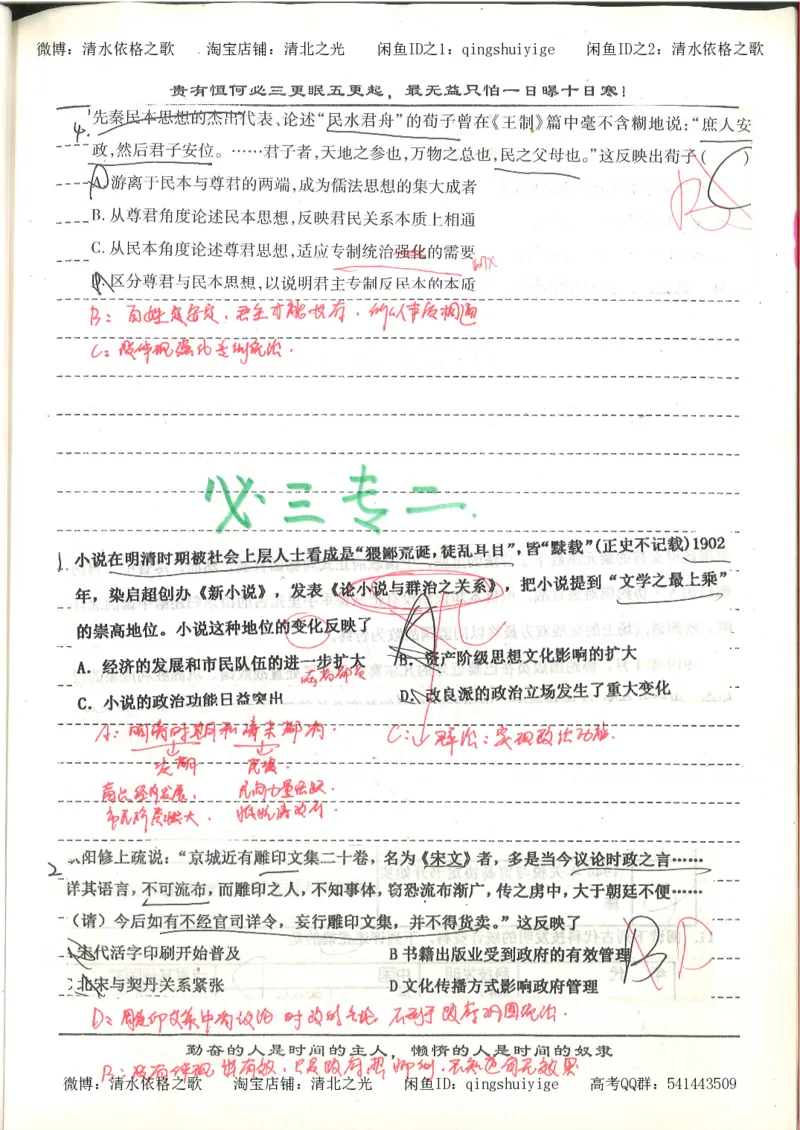 微博：清水依格之歌 淘宝店铺：清北之光 闲鱼ID之1：qingshuiyige 闲鱼ID之2：清水依格之歌
贵有恒何必三更眠五更起，最无益只怕一日曝十日寒！
4. 先秦民本思想的杰出代表、论述“民水君舟”的荀子曾在《王制》篇中毫不含糊地说：“庶人安
政，然后君子安位。……君子者，天地之参也，万物之总也，民之父母也。”这反映出荀子（C）
B
A. 游离于民本与尊君的两端，成为儒法思想的集大成者
B. 从尊君角度论述民本思想，反映君民关系本质上相通
C. 从民本角度论述尊君思想，适应专制统治强化的需要
D. 区分尊君与民本思想，以说明君主专制反民本的本质
B：百姓安定，君主才能长存，所以本质相通
C：没体现强化专制统治．
必三专二
1. 小说在明清时期被社会上层人士看成是“猥鄙荒诞，徒乱耳目”，皆“黜载”（正史不记载）1902
年，梁启超创办《新小说》，发表《论小说与群治之关系》，把小说提到“文学之最上乘”
的崇高地位。小说这种地位的变化反映了
A. 经济的发展和市民队伍的进一步扩大 B. 资产阶级思想文化影响的扩大
两者都有
C. 小说的政治功能日益突出 D. 改良派的政治立场发生了重大变化
A：明清时期和清末都有． C：群治：实现政治功能．
商品经济发展，
市民阶层壮大．
2 欧阳修上疏说：“京城近有雕印文集二十卷，名为《宋文》者，多是当今议论时政之言……
详其语言，不可流布，而雕印之人，不知事体，窃恐流布渐广，传之虏中，大于朝廷不便……
（请）今后如有不经官司详令，妄行雕印文集，并不得货卖。”这反映了
B D
A 宋代活字印刷开始普及 B 书籍出版业受到政府的有效管理
C 北宋与契丹关系紧张 D 文化传播方式影响政府管理
D：雕印文集中有议论时政的言论，不利于政府的统治．
勤奋的人是时间的主人，懒惰的人是时间的奴隶
B：没有体现出有效，只是政府想抑制，不知道有无效果
微博：清水依格之歌 淘宝店铺：清北之光 闲鱼ID：qingshuiyige 高考QQ群：541443509